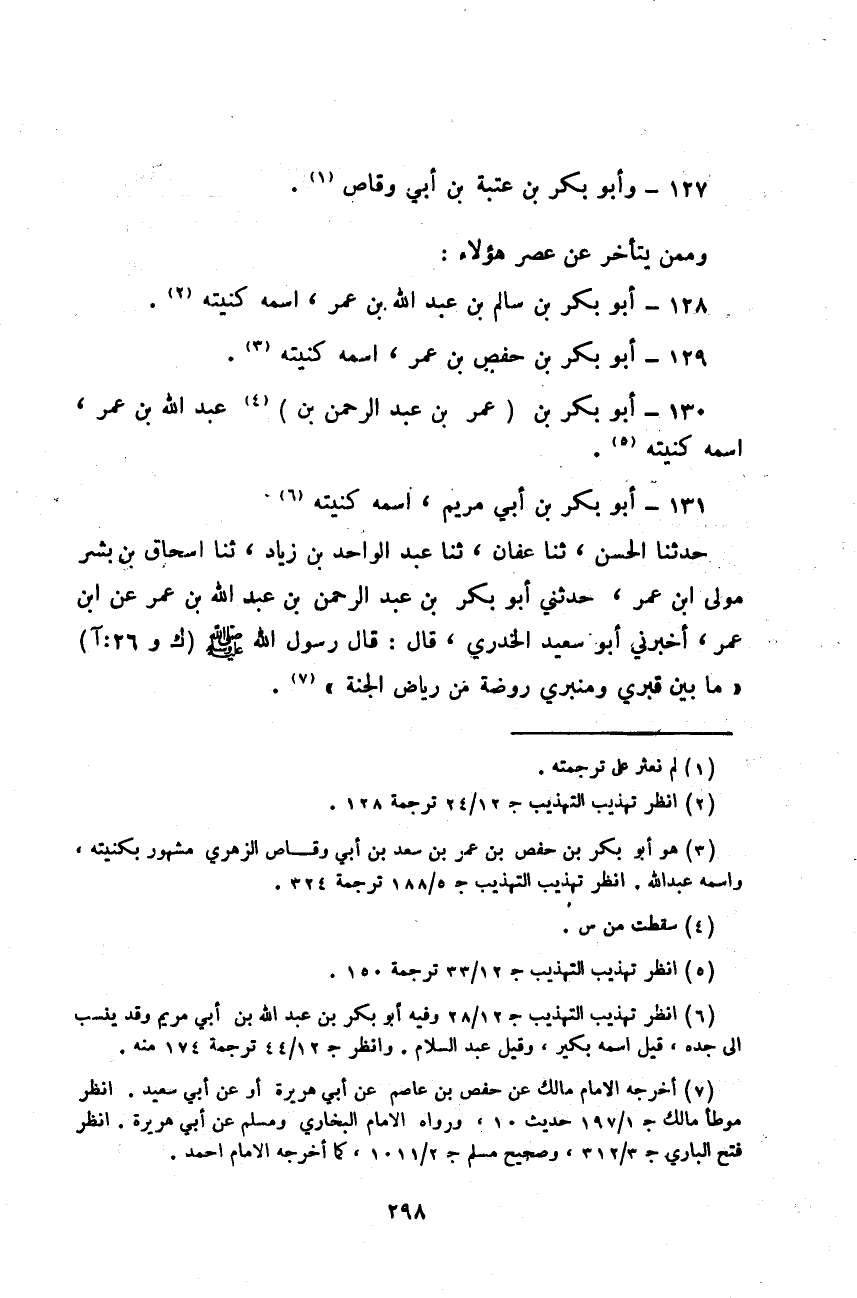 ١٢٧ – وأبو بكر بن عتبة بن أبي وقاص (١) .
وممن يتأخر عن عصر هؤلاء :
١٢٨ – أبو بكر بن سالم بن عبد الله بن عمر ، اسمه كنيته (٢) .
١٢٩ – أبو بكر بن حفص بن عمر ، اسمه كنيته (٣) .
١٣٠ – أبو بكر بن ( عمر بن عبد الرحمن بن ) (٤) عبد الله بن عمر ،
اسمه كنيته (٥) .
١٣١ – أبو بكر بن أبي مريم ، اسمه كنيته (٦) .
حدثنا الحسن ، ثنا عفان ، ثنا عبد الواحد بن زياد ، ثنا اسحاق بن بشر
مولى ابن عمر ، حدثني أبو بكر بن عبد الرحمن بن عبد الله بن عمر عن ابن
عمر ، أخبرني أبو سعيد الخدري ، قال : قال رسول الله ﷺ (ك و ٢٦:آ)
« ما بين قبري ومنبري روضة من رياض الجنة » (٧) .
(١) لم نعثر على ترجمته .
(٢) انظر تهذيب التهذيب ج ٢٤/١٢ ترجمة ١٢٨ .
(٣) هو أبو بكر بن حفص بن عمر بن سعد بن أبي وقـــاص الزهري مشهور بكنيته ،
واسمه عبدالله . انظر تهذيب التهذيب ج ١٨٨/٥ ترجمة ٣٢٤ .
(٤) سقطت من س .
(٥) انظر تهذيب التهذيب ج ٣٣/١٢ ترجمة ١٥٠ .
(٦) انظر تهذيب التهذيب ج ٢٨/١٢ وفيه أبو بكر بن عبد الله بن أبي مريم وقد ينسب
الى جده ، قيل اسمه بكير ، وقيل عبد السلام . وانظر ج ٤٤/١٢ ترجمة ١٧٤ منه .
(٧) أخرجه الامام مالك عن حفص بن عاصم عن أبي هريرة أو عن أبي سعيد . انظر
موطأ مالك ج ١٩٧/١ حديث ١٠ ، ورواه الامام البخاري ومسلم عن أبي هريرة . انظر
فتح الباري ج ٣١٢/٣ ، وصحيح مسلم ج ١٠١١/٢ ، كما أخرجه الامام احمد .
٢٩٨